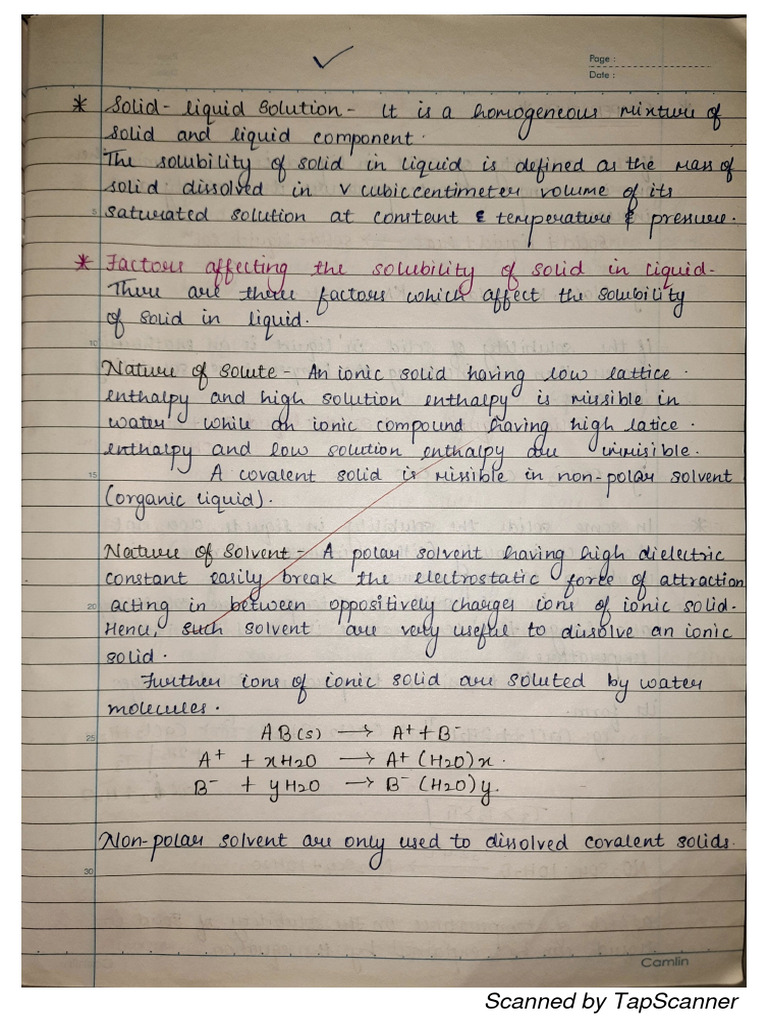 Page :
Date :
* Solid- liquid Solution - It is a homogeneous mixture of
solid and liquid component.
The solubility of solid in liquid is defined as the mass of
solid dissolved in v cubiccentimeter volume of its
5 saturated solution at constant & temperature & pressure.
* Factors affecting the solubility of solid in liquid-
There are there factors which affect the solubility
of solid in liquid.
10
Nature of Solute - An ionic solid having low lattice
enthalpy and high solution enthalpy is missible in
water while an ionic compound having high latice
enthalpy and low solution enthalpy are immisible.
15 A covalent solid is missible in non-polar solvent
(organic liquid).
Nature of Solvent - A polar solvent having high dielectric
constant easily break the electrostatic force of attraction
20 acting in between oppositively charges ions of ionic solid.
Hence, such solvent are very useful to dissolve an ionic
solid.
Further ions of ionic solid are soluted by water
molecules.
25 AB(s) → A⁺ + B⁻
A⁺ + xH2O → A⁺ (H2O)x.
B⁻ + yH2O → B⁻ (H2O)y.
Non-polar solvent are only used to dissolved covalent solids.
30
Camlin
Scanned by TapScanner